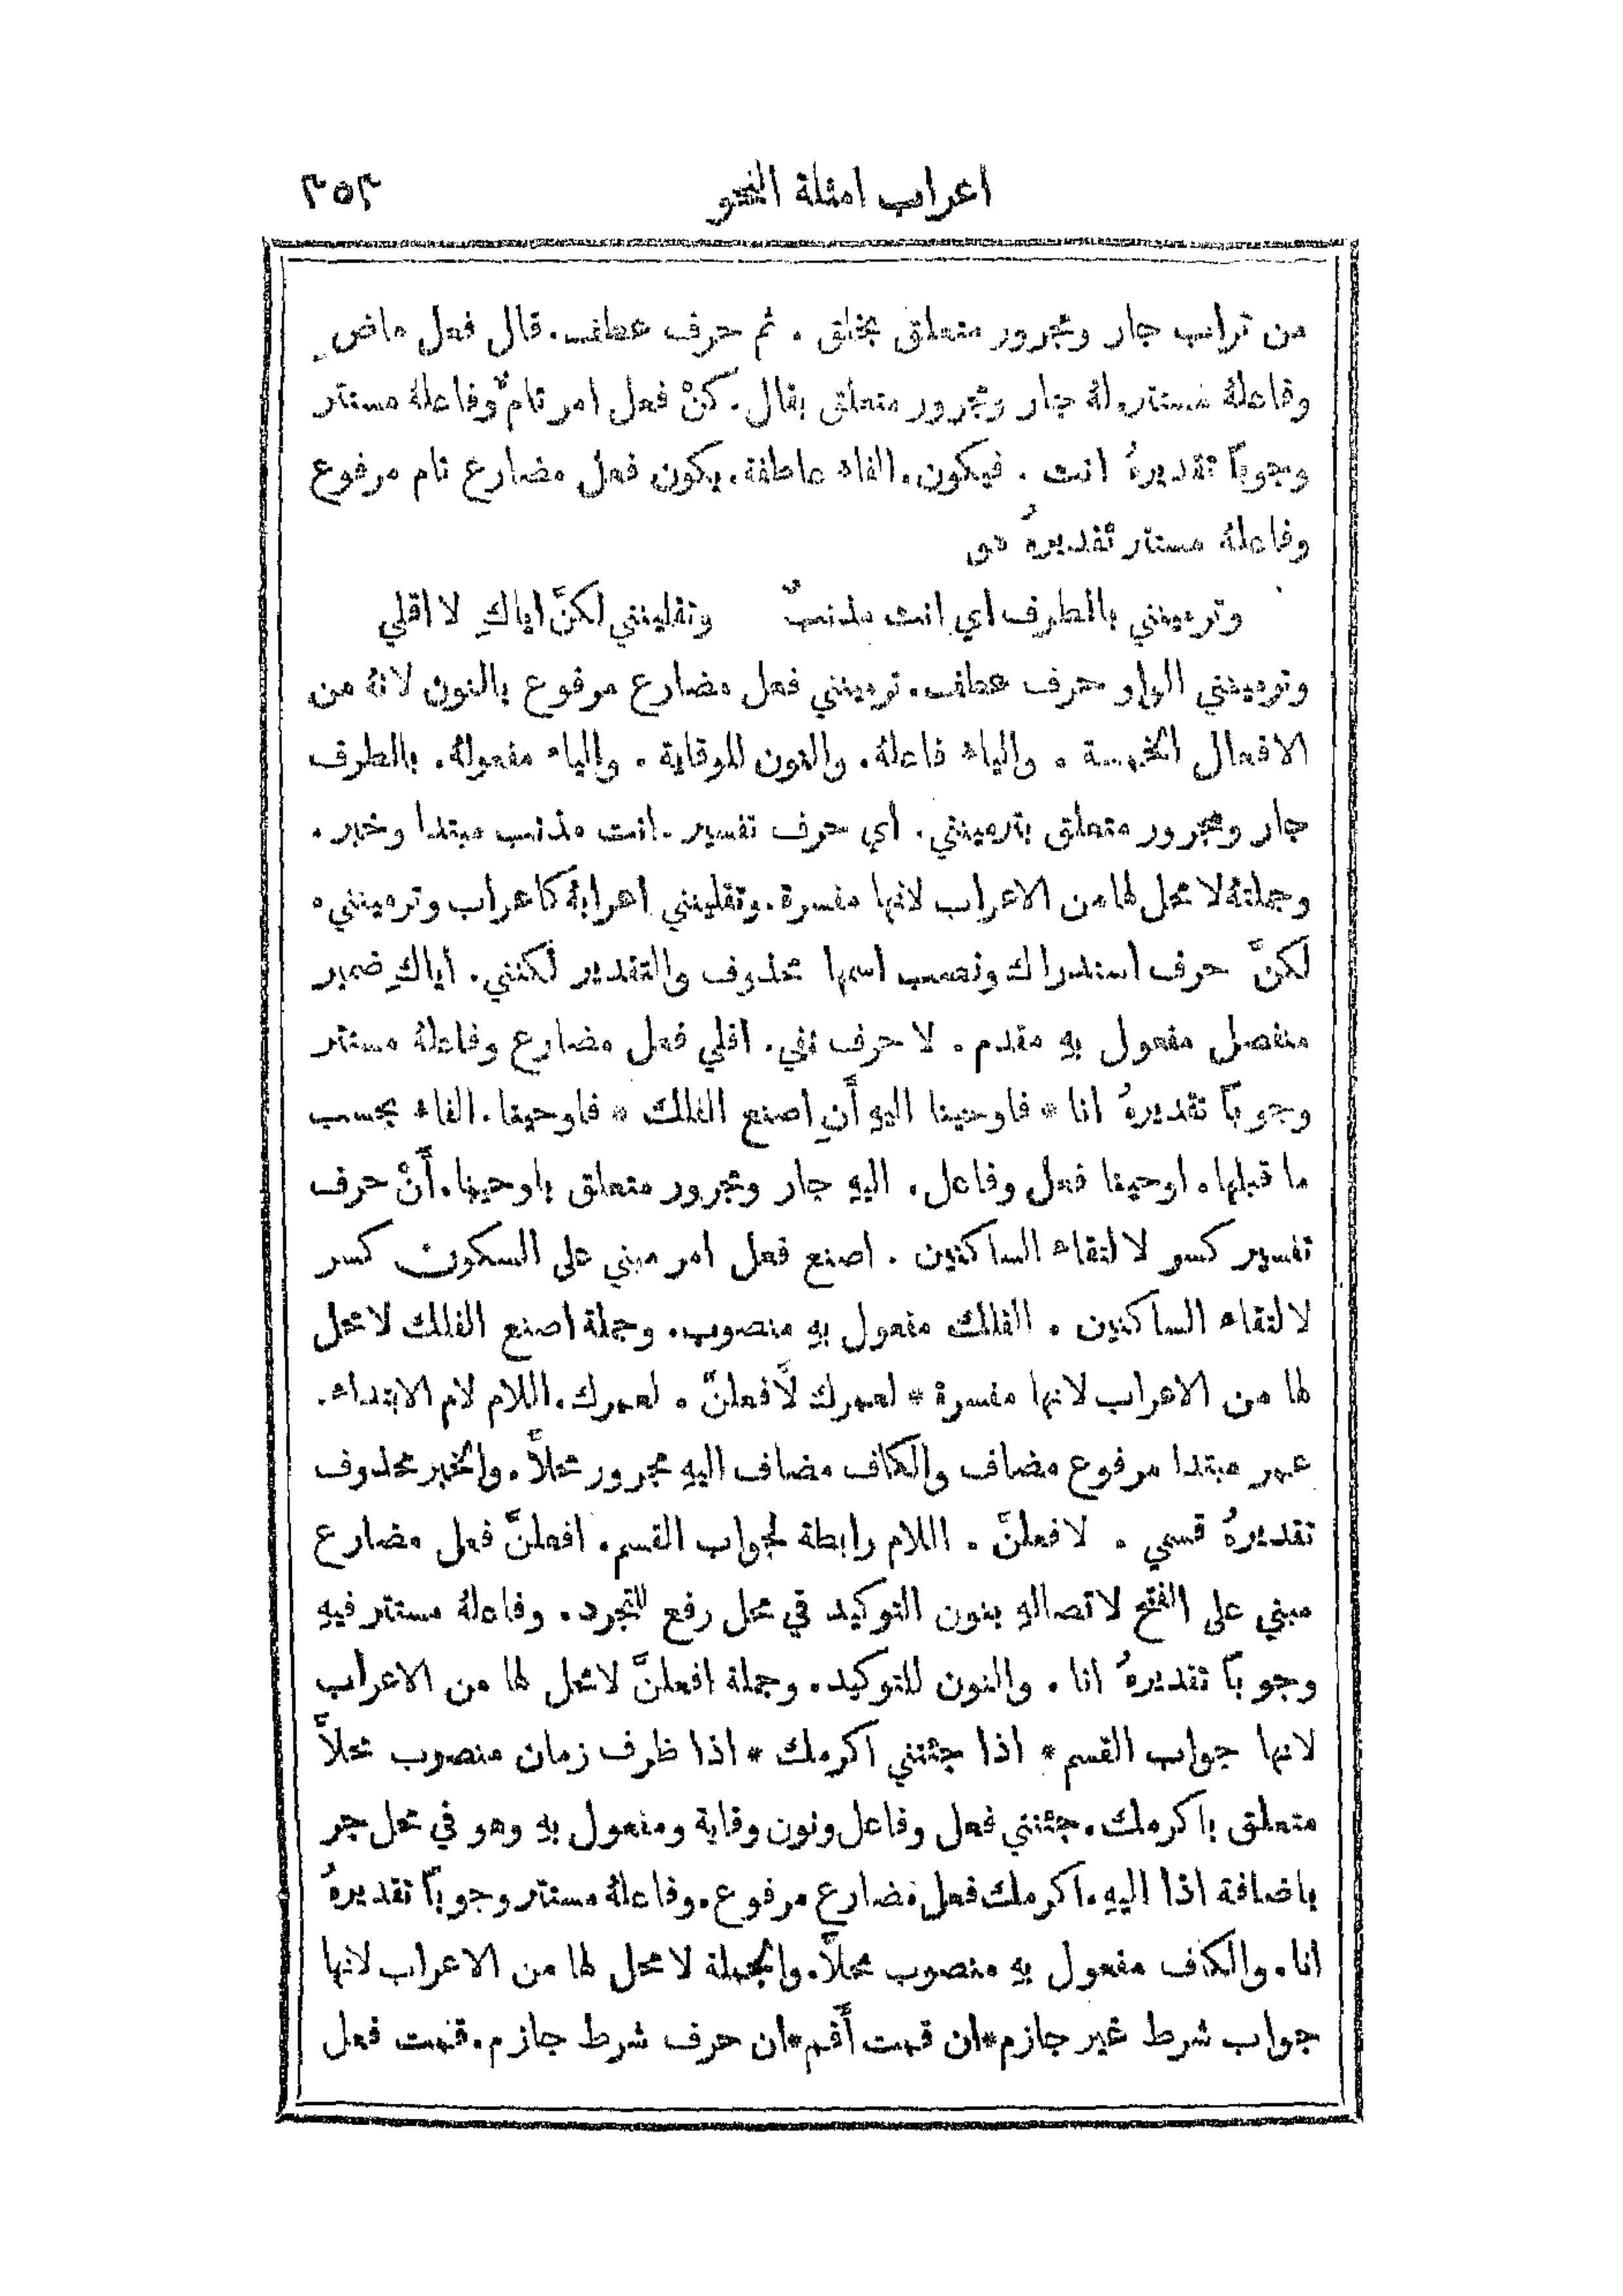 اعراب امثلة النحو ٣٥٣
من تراب جار ومجرور متعلق بخلق . ثم حرف عطف . قال فعل ماضٍ
وفاعلهُ مستتر . لهُ جار ومجرور متعلق بقال . كنْ فعل امر تامٌّ وفاعلهُ مستتر
وجوباً تقديرهُ انت . فيكون . الفاء عاطفة . يكون فعل مضارع تام مرفوع
وفاعلهُ مستتر تقديرهُ هو
وترمينني بالطرف اي انت مذنبٌ وتقلينني لكنَّ اياكِ لا اقلي
وترمينني الواو حرف عطف . ترمينني فعل مضارع مرفوع بالنون لانهُ من
الافعال الخمسة . والياء فاعلهُ . والنون للوقاية . والياء مفعولهُ . بالطرف
جار ومجرور متعلق بترمينني . اي حرف تفسير . انت مذنب مبتدا وخبر .
وجملتهُ لا محل لها من الاعراب لانها مفسرة . وتقلينني اعرابهُ كاعراب وترمينني .
لكنَّ حرف استدراك ونصب اسمها محذوف والتقدير لكنني . اياكِ ضمير
منفصل مفعول بهِ مقدم . لا حرف نفي . اقلي فعل مضارع وفاعلهُ مستتر
وجوباً تقديرهُ انا * فاوحينا اليهِ أَنِ اصنع الفلك * فاوحينا . الفاء بحسب
ما قبلها . اوحينا فعل وفاعل . اليهِ جار ومجرور متعلق باوحينا . أَنْ حرف
تفسير كسر لالتقاء الساكنين . اصنع فعل امر مبني على السكون كسر
لالتقاء الساكنين . الفلك مفعول بهِ منصوب . وجملة اصنع الفلك لا محل
لها من الاعراب لانها مفسرة * لعمرك لَأفعلنَّ . لعمرك . اللام لام الابتداء .
عمر مبتدا مرفوع مضاف والكاف مضاف اليهِ مجرور محلاًّ . والخبر محذوف
تقديرهُ قسمي . لافعلنَّ . اللام رابطة لجواب القسم . افعلنَّ فعل مضارع
مبني على الفتح لاتصالهِ بنون التوكيد في محل رفع للتجرد . وفاعلهُ مستتر فيهِ
وجوباً تقديرهُ انا . والنون للتوكيد . وجملة افعلنَّ لا محل لها من الاعراب
لانها جواب القسم * اذا جئتني اكرمك * اذا ظرف زمان منصوب محلاًّ
متعلق باكرمك . جئتني فعل وفاعل ونون وقاية ومفعول بهِ وهو في محل جر
باضافة اذا اليهِ . اكرمك فعل مضارع مرفوع . وفاعلهُ مستتر وجوباً تقديرهُ
انا . والكاف مفعول بهِ منصوب محلاًّ . والجملة لا محل لها من الاعراب لانها
جواب شرط غير جازم * ان قمت أَقم * ان حرف شرط جازم . قمت فعل